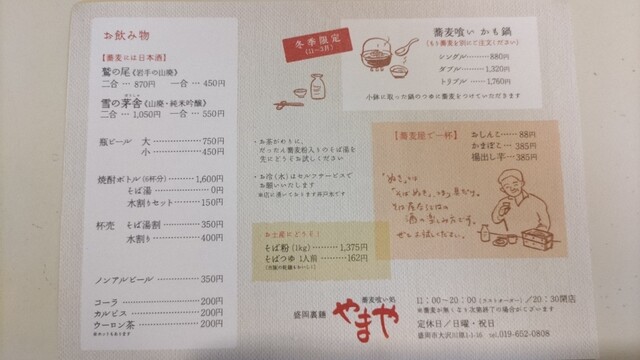 お飲み物
【蕎麦には日本酒】
鷲の尾《岩手の山廃》
二合 … 870円 一合 … 450円
雪の茅舎《山廃・純米吟醸》
二合 … 1,050円 一合 … 550円
瓶ビール 大 ………… 750円
小 ………… 450円
焼酎ボトル(6杯分) ……… 1,600円
そば湯 ………… 0円
水割りセット ……… 150円
杯売 そば湯割 ……… 350円
水割り ……… 400円
ノンアルビール ………… 350円
コーラ ………… 200円
カルピス ………… 200円
ウーロン茶 ………… 200円
冬季限定
(11〜3月)
・お茶がわりに、
だったん蕎麦粉入りのそば湯を
先にどうぞお試しください
・お冷(水)はセルフサービスで
お願いいたします
お土産にどうぞ!
そば粉(1kg) ……… 1,375円
そばつゆ 1人前 ……… 162円
蕎麦喰い かも鍋
(もり蕎麦を別にご注文ください)
シングル ……… 880円
ダブル ……… 1,320円
トリプル …… 1,760円
小鉢に取った鍋のつゆに蕎麦をつけていただきます
【蕎麦屋で一杯】
おしんこ …… 88円
かまぼこ … 385円
揚出し芋 … 385円
盛岡裏麺
蕎麦喰い処
やまや
11:00〜20:00(ラストオーダー)/20:30閉店
※蕎麦が無くなり次第終了の場合がございます
定休日/日曜・祝日
盛岡市大沢川原1-1-16 tel.019-652-0808